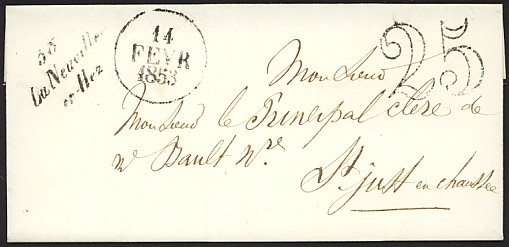 58
La Neuville
en-Hez
14
FEVR
1853
25
Monsieur
Monsieur le Principal clerc de
Mr Bault Nre
St just en chaussée